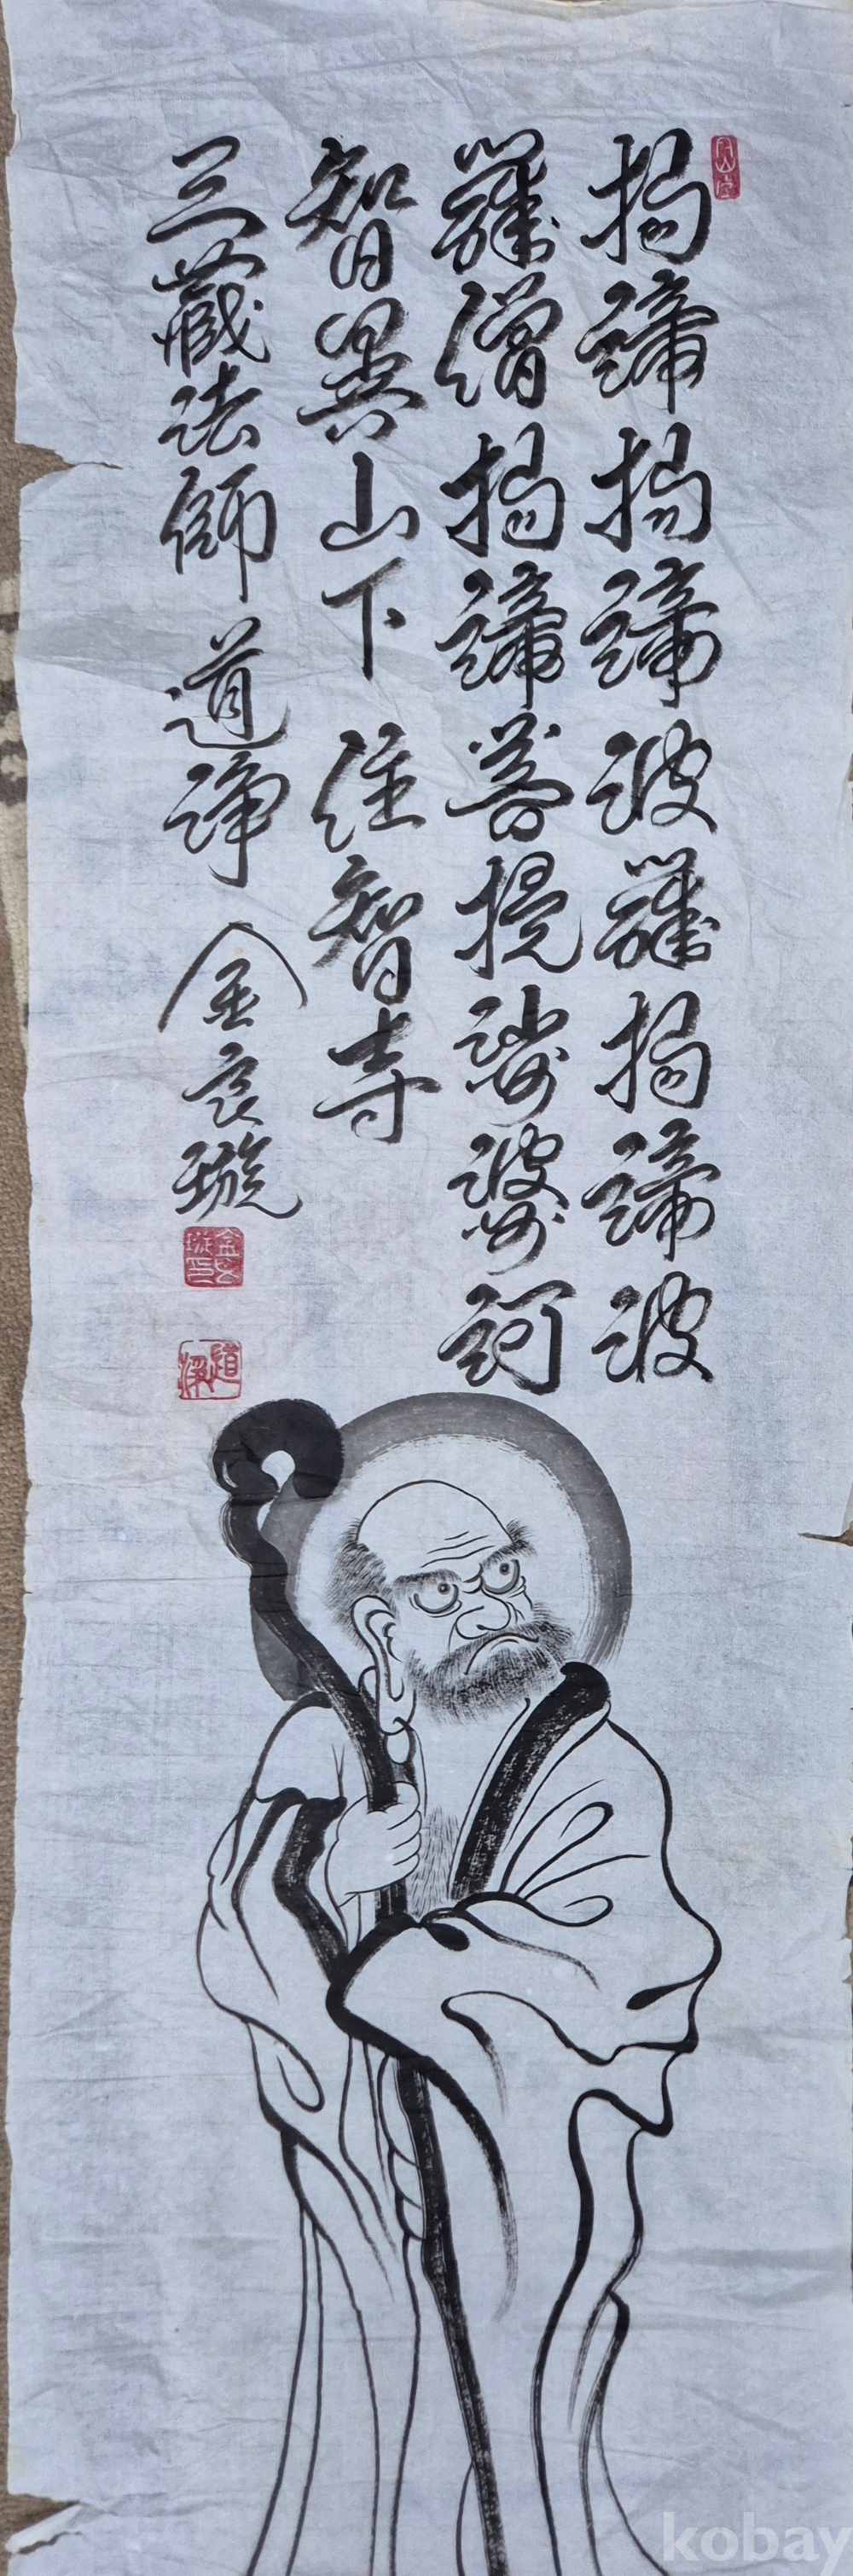 揭諦揭諦波羅揭諦波
羅僧揭諦菩提娑婆訶
智異山下 住智寺
三藏法師 道諍 金良璇
kobay